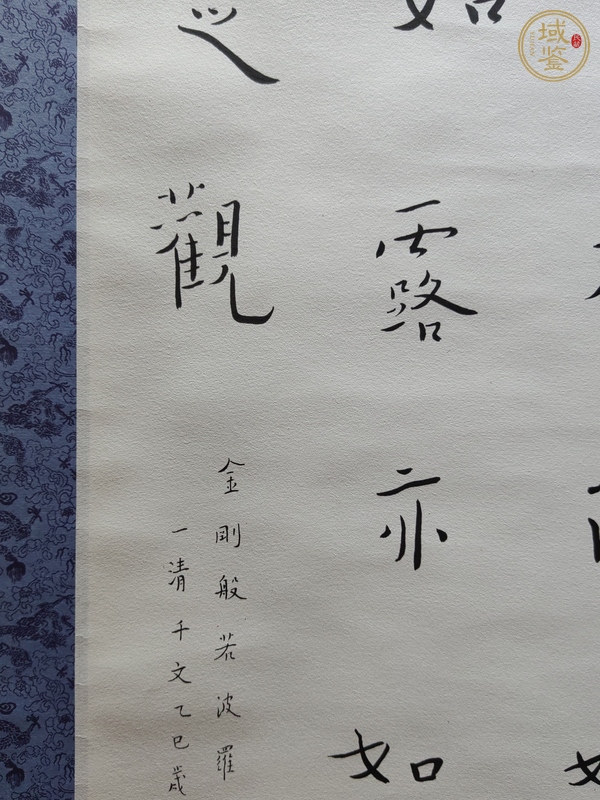 如露亦如
觀
金剛般若波羅
一清千文乙巳歲
域鉴